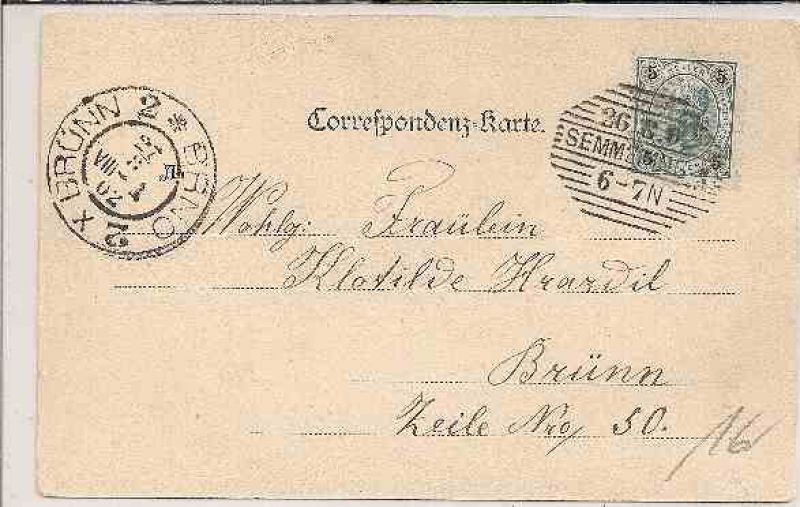 Correspondenz-Karte.
BRÜNN 2 * BRNO 2
VIII
5 5
26 8
SEMMERING
6-7N
Wohlg: Fräulein
Klotilde Hrazdil
Brünn
Zeile Nro, 50.
16